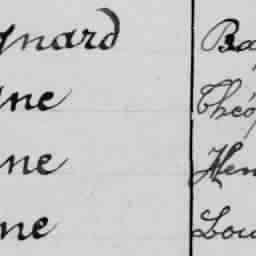 gnard Ba
gne Théo
ne Hen
ne Lou